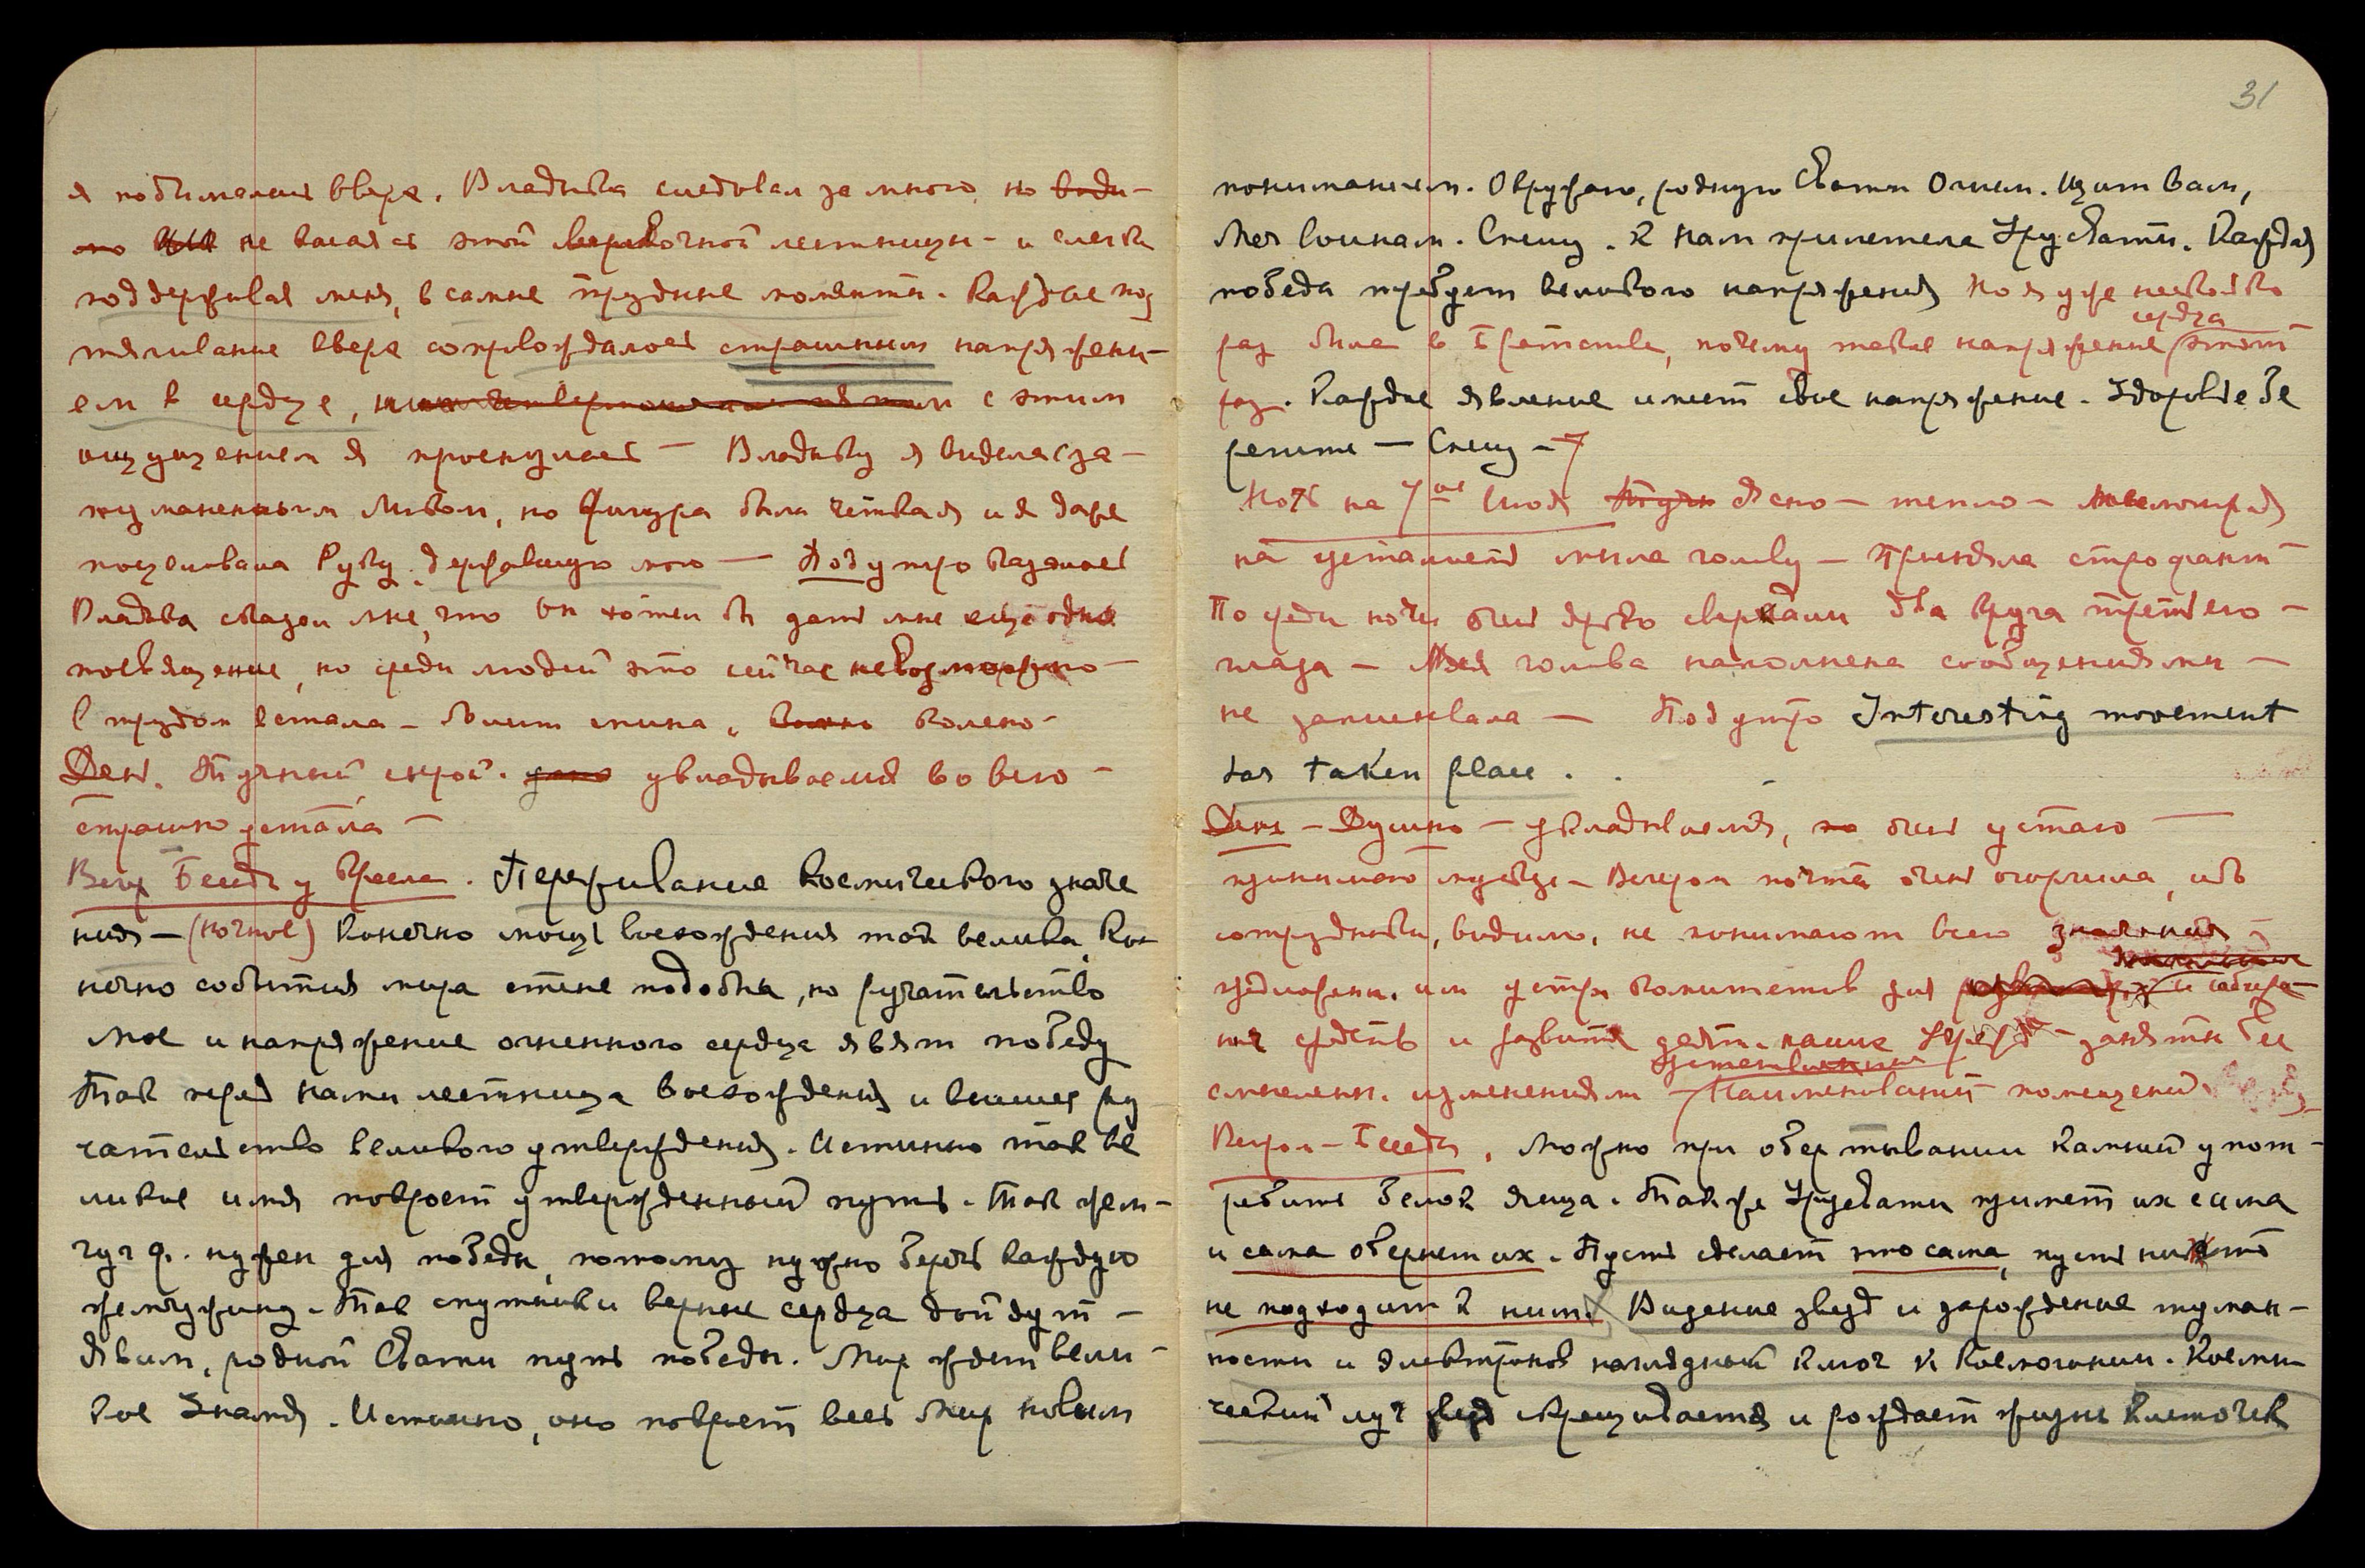 я подымалась вверх. Владыка следовал за мною, но види-
мо не касаясь этой верёвочной лестницы - и слегка
поддерживая меня, в самые трудные моменты. Каждое под
тягивание вверх сопровождалось страшным напряжени-
ем в сердце, с этим
ощущением я проснулась — Владыку я видела за-
туманенным Ликом, но фигура была чёткая и я даже
поцеловала Руку, державшую мою — Под утро казалось
Владыка сказал мне, что Он хотел бы дать мне ещё одно
посвящение, но среди людей это сейчас невозможно -
С трудом встала - болит спина, колено -
День. Тучный, сырой. укладываемся во всю -
страшно устала -
Вечер Беседы у Кресла. Переживание космического значе
ния - (ночное) Конечно мощь восхождения так велика, Ко-
нечно события мира стене подобны, но ручательство
Мое и напряжение огненного сердца явят победу
Так перед нами лестница восхождения и высшее ру
чательство великого утверждения. Истинно так ве
ликое имя покроет утвержденный путь. Так жем-
чуг ф. нужен для победы, потому нужно беречь каждую
жемчужину. Так спутники верные сердца дойдут -
Явим, родной Свати путь победы. Мир ждет вели-
кое Знамя. Истинно, оно покроет весь Мир новым
31
пониманием. Окружаю, родную Свати Огнем. Щит вам,
Меч воинам. Спешу. К нам прилетела Урусвати. Каждая
победа требует великого напряжения Но я уже несколько
сердца
раз была в Братстве, почему такое напряжение этот
раз. Каждое явление имеет свое напряжение. Здоровье бе
регите — Спешу -
Ночь на 7ое Июля Ясно - тепло -
на усталость мыла голову - Приняла строфант -
Посреди ночи очень ярко сверкали два круга третьего -
глаза - Моя голова наполнена сообщениями -
не записывала — Под утро Interesting movement
has taken place.
День - Душно - укладываемся, очень устаю —
принимаю мускус - Вечером почта очень огорчила, ибо
сотрудники, видимо, не понимают всего
предложен. им устр. комитетов для и собира-
ния средств и развития деят. наших Учрежд - заняты бес
смыслен. изменениями Наименований помещений
Вечером - Беседы. Можно при обертывании камней упот-
ребить белок яйца. Также Урусвати примет их сама
и сама обернет их. Пусть сделает это сама, пусть никто
не подходит к ним. Видение звезд и зарождение туман-
ности и электронов наглядный ключ к Космогонии. Косми-
ческий луч звезд скрещивается и рождает жизнь клеточек